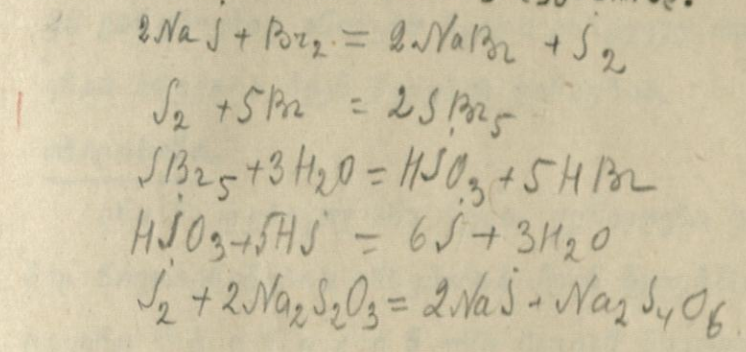 2NaJ + Br₂ = 2NaBr + J₂
J₂ + 5Br = 2JBr₅
JBr₅ + 3H₂O = HJO₃ + 5HBr
HJO₃ + 5HJ = 6J + 3H₂O
J₂ + 2Na₂S₂O₃ = 2NaJ + Na₂S₄O₆